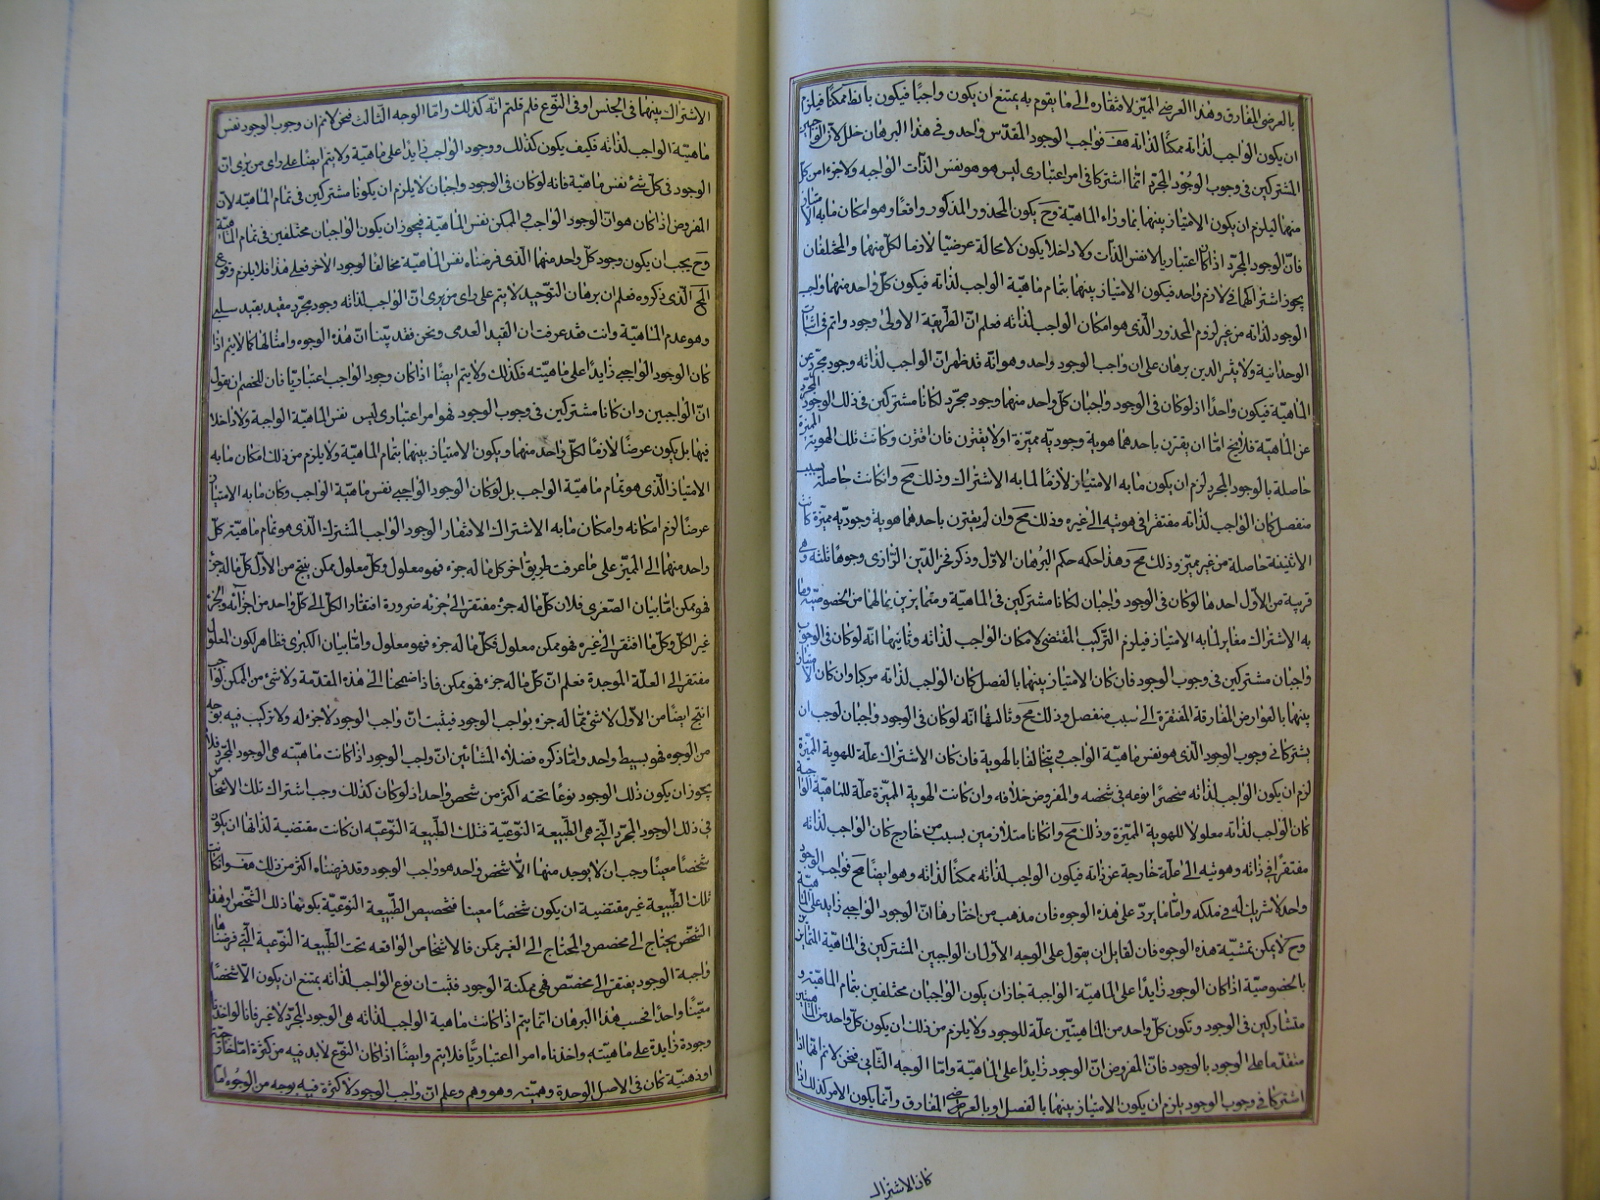 بالعرضى المفارق وهذا العرضى المميز لافتقاره الى ما يقوم به يمتنع ان يكون واجبًا فيكون بالط ممكنًا فيلزم
ان يكون الواجب لذاته ممكنًا لذاته هف فواجب الوجود المقدس واحد وفى هذا البرهان خلل لان الواجبين
المشتركين فى وجوب الوجود المجرد انما اشتركا فى امر اعتبارى ليس هو هو نفس الذات الواجبه ولا جزءا من كل
منهما ليلزم ان يكون الامتياز بينهما بما وراء الماهية وح يكون المحذور المذكور واقعًا وهو امكان ما به الامتياز
فان الوجود المجرد اذا كان اعتباريا لا نفس الذات ولا داخلا يكون لا محالة عرضيًا لازما لكل منهما والمختلفان
يجوز اشتراكهما فى لازم واحد فيكون الامتياز بينهما بتمام ماهية الواجب لذاته فيكون كل واحد منهما واجب
الوجود لذاته من غير لزوم المحذور الذى هو امكان الواجب لذاته فعلم ان الطريقة الاولى وجود واتم فى اثبات
الوحدانية ولاثير الدين برهان على ان واجب الوجود واحد وهو انه قد ظهر ان الواجب لذاته وجود مجرد عن
الماهية فيكون واحدًا اذ لو كان فى الوجود واجبان كل واحد منهما وجود مجرد لكانا مشتركين فى ذلك الوجود المجرد
عن الماهية فلا يخ اما ان يقترن باحدهما هوية وجوديه مميزة او لا يقترن فان اقترن وكانت تلك الهوية المميزة
حاصلة بالوجود المجرد لزم ان يكون ما به الامتياز لازمًا لما به الاشتراك وذلك مح وان كانت حاصلة بسبب
منفصل كان الواجب لذاته مفتقرا فى هويته الى غيره وذلك مح وان لم يقترن باحدهما هوية وجوديه مميزة كانت
الاثنينة حاصلة من غير مميز وذلك مح وهذا حكمه حكم البرهان الاول وذكر فخر الدين الرازى وجوها ثلثه وهى
قريبة من الاول احدها لو كان فى الوجود واجبان لكانا مشتركين فى الماهية ومتمايزين بمالهما من الخصوصية وما
به الاشتراك مغاير لما به الامتياز فيلزم التركيب المقتضى لامكان الواجب لذاته وثانيها انه لو كان فى الوجود
واجبان مشتركين فى وجوب الوجود فان كان الامتياز بينهما بالفصل كان الواجب لذاته مركبا وان كان الامتياز
بينهما بالعوارض المفارقة المفتقرة الى سبب منفصل وذلك مح وثالثها انه لو كان فى الوجود واجبان لوجب ان
يشتركا فى وجوب الوجود الذى هو نفس ماهية الواجب ويتخالفا بالهوية فان كان الاشتراك علة للهوية المميزة
لزم ان يكون الواجب لذاته منحصرًا نوعه فى شخصه والمفروض خلافه وان كانت الهوية المميزة علة للماهية الواجبة
كان الواجب لذاته معلولا للهوية المميزة وذلك مح وان كانا متلازمين بسبب من خارج كان الواجب لذاته
مفتقرا فى ذاته وهويته الى علة خارجة عن ذاته فيكون الواجب لذاته ممكنًا لذاته وهو ايضًا مح فواجب الوجود
واحد لا شريك له فى ملكه واما ما يرد على هذه الوجوه فان مذهب من اختارها ان الوجود الواجبى زايد على الماهية
وح لا يمكن تمشية هذه الوجوه فان لقايل ان يقول على الوجه الاول ان الواجبين المشتركين فى الماهية المتمايزين
بالخصوصية اذا كان الوجود زايدًا على الماهية الواجبة جاز ان يكون الواجبان مختلفين بتمام الماهية و
متشاركين فى الوجود وتكون كل واحد من الماهيتين علة للوجود ولا يلزم من ذلك ان يكون كل واحد من الماهيتين
متقدما على الوجود بالوجود فان المفروض ان الوجود زايدًا على الماهية واما الوجه الثانى فنحن لا نم انهما اذا
اشتركا فى وجوب الوجود يلزم ان يكون الامتياز بينهما بالفصل او بالعرضى المفارق وانما يكون الامر كذلك اذا
كان الاشتراك
الاشتراك بينهما فى الجنس او فى النوع فلم قلتم انه كذلك واما الوجه الثالث فنحن لا نم ان وجوب الوجود نفس
ماهية الواجب لذاته فكيف يكون كذلك ووجود الواجب زايدًا على ماهية ولا يتم ايضًا على راى من يرى ان
الوجود فى كل شئ نفس ماهية فانه لو كان فى الوجود واجبان لا يلزم ان يكونا مشتركين فى تمام الماهية لان
المفروض اذا كان هو ان الوجود الواجب والممكن نفس الماهية فيجوز ان يكون الواجبان مختلفين فى تمام الماهية
وح يجب ان يكون وجود كل واحد منهما الذى فرضناه نفس الماهية مخالفا لوجود الاخر فعلى هذا فلا يلزم وقوع
المح الذى ذكروه فعلم ان برهان التوحيد لا يتم على راى من يرى ان الواجب لذاته وجود مجرد مقيد بقيد سلبى
وهو عدم الماهية وانت قد عرفت ان القيد العدمى ونحن فقد بينا ان هذه الوجوه وامثالها كما لا يتم اذا
كان الوجود الواجبى زايدًا على ماهيته فكذلك ولا يتم ايضًا اذا كان وجود الواجب اعتباريًا فان للخصم ان يقول
ان الواجبين وان كانا مشتركين فى وجوب الوجود فهو امر اعتبارى ليس نفس الماهية الواجبة ولا داخلا
فيها بل يكون عرضًا لازمًا لكل واحد منهما ويكون الامتياز بينهما بتمام الماهية ولا يلزم من ذلك امكان ما به
الامتياز الذى هو تمام ماهية الواجب بل لو كان الوجود الواجبى نفس ماهية الواجب وكان ما به الامتياز
عرضًا لزم امكانه وامكان ما به الاشتراك الافتقار الوجود الواجب المشترك الذى هو تمام ماهية كل
واحد منهما الى المميز على ما عرفت طريق اخر كل ما له جزء فهو معلول وكل معلول ممكن ينتج من الاول كل ما له جزء
فهو ممكن اما بيان الصغرى فلان كل ما له جزء مفتقر الى جزئه ضرورة افتقار الكل الى كل واحد من اجزائه والجزء
غير الكل وكل ما افتقر الى غيره فهو ممكن معلول فكل ما له جزء فهو معلول واما بيان الكبرى فظاهر لكون المعلول
مفتقر الى العلة الموجدة فعلم ان كل ما له جزء فهو ممكن فاذا ضمحنا الى هذه المقدمة ولا شئ من الممكن بواجب
انتج ايضًا من الاول لا شئ مما له جزء بواجب الوجود فيثبت ان واجب الوجود لا جزء له ولا تركيب فيه بوجه
من الوجوه فهو بسيط واحد واما ذكره فضلاء المشائين ان واجب الوجود اذا كانت ماهيته هى الوجود المجرد فلا
يجوز ان يكون ذلك الوجود نوعًا تحته اكثر من شخص واحد اذ لو كان كذلك وجب اشتراك تلك الاشخاص
فى ذلك الوجود المجرد التى هى الطبيعة النوعية فتلك الطبيعة النوعيه ان كانت مقتضية لذاتها ان يكون
شخصًا معينًا وجب ان لا يوجد منها الا شخص واحد هو واجب الوجود وقد فرضناه اكثر من ذلك هف وان كانت
تلك الطبيعة غير مقتضية ان يكون شخصًا معينا فتخصيص الطبيعة النوعية بكونها ذلك الشخص او هذا
الشخص يحتاج الى مخصص والمحتاج الى الغير ممكن فالاشخاص الواقعه تحت الطبيعة النوعية التى فرضناها
واجبة الوجود يفتقر الى مخصص فهى ممكنة الوجود فثبت ان نوع الواجب لذاته يمتنع ان يكون الا شخصًا
معينًا واحدًا فحسب هذا البرهان انما يتم اذا كانت ماهية الواجب لذاته هى الوجود المجرد لا غير فانا لو اخذنا
وجوده زايدة على ماهيته واخذناه امرا اعتباريًا فلا يتم وايضًا اذا كان النوع لا بد فيه من كثرة اما خارجية
او ذهنية كان فى الاصل الوحدة وهميته وهو وهم وعلم ان واجب الوجود لا كثرة فيه بوجه من الوجوه اما